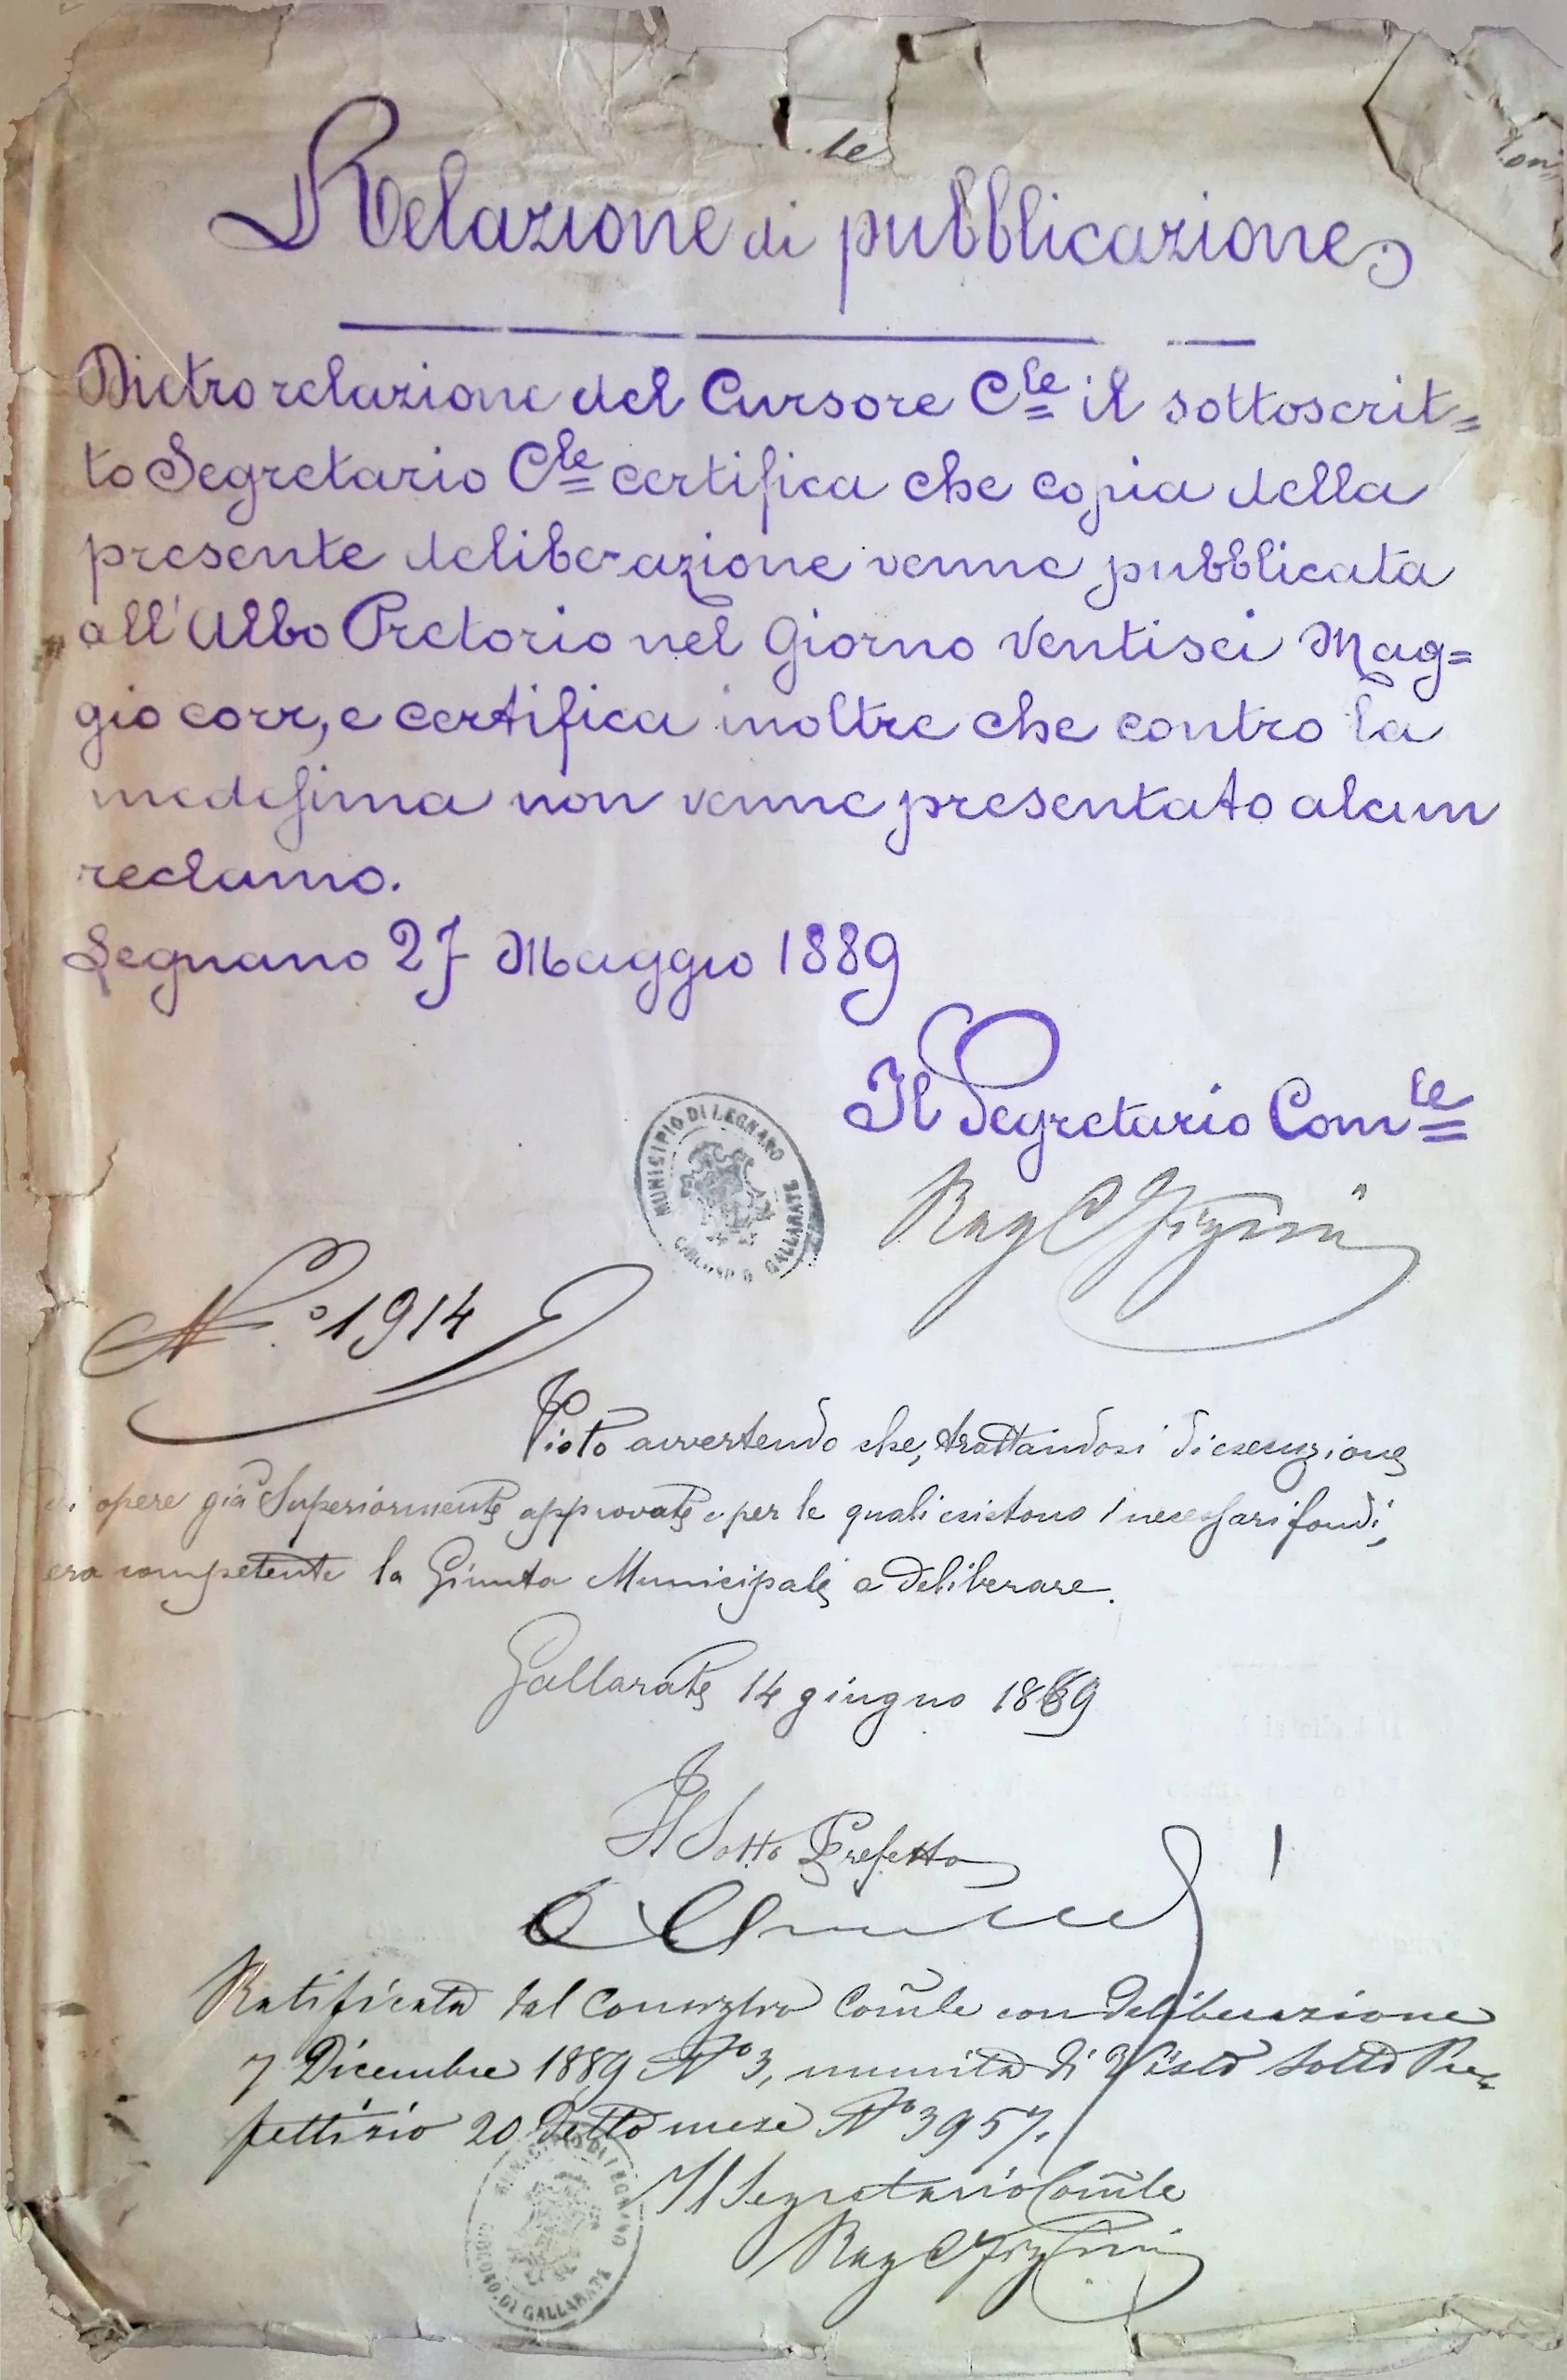 te
Relazione di pubblicazione
Dietro relazione del Cursore C.le il sottoscrit=
to Segretario C.le certifica che copia della
presente deliberazione venne pubblicata
all'Albo Pretorio nel Giorno Ventisei Mag=
gio corr, e certifica inoltre che contro la
medesima non venne presentato alcun
reclamo.
Legnano 27 Maggio 1889
Il Segretario Com.le
MUNICIPIO DI LEGNANO
CIRCOND. DI GALLARATE
Rag C
N.° 1914
Visto avvertendo che, trattandosi di esecuzione
di opere già Superiormente approvate e per le quali esistono i necessari fondi,
era competente la Giunta Municipale a deliberare.
Gallarate 14 giugno 1889
Il Sotto Prefetto
Ratificata dal Consiglio Com̃le con deliberazione
7 Dicembre 1889 N° 3, munita di Visto Sotto Pre=
fettizio 20 detto mese N° 3957.
Il Segretario Com̃le
Rag C
MUNICIPIO DI LEGNANO
CIRCOND. DI GALLARATE